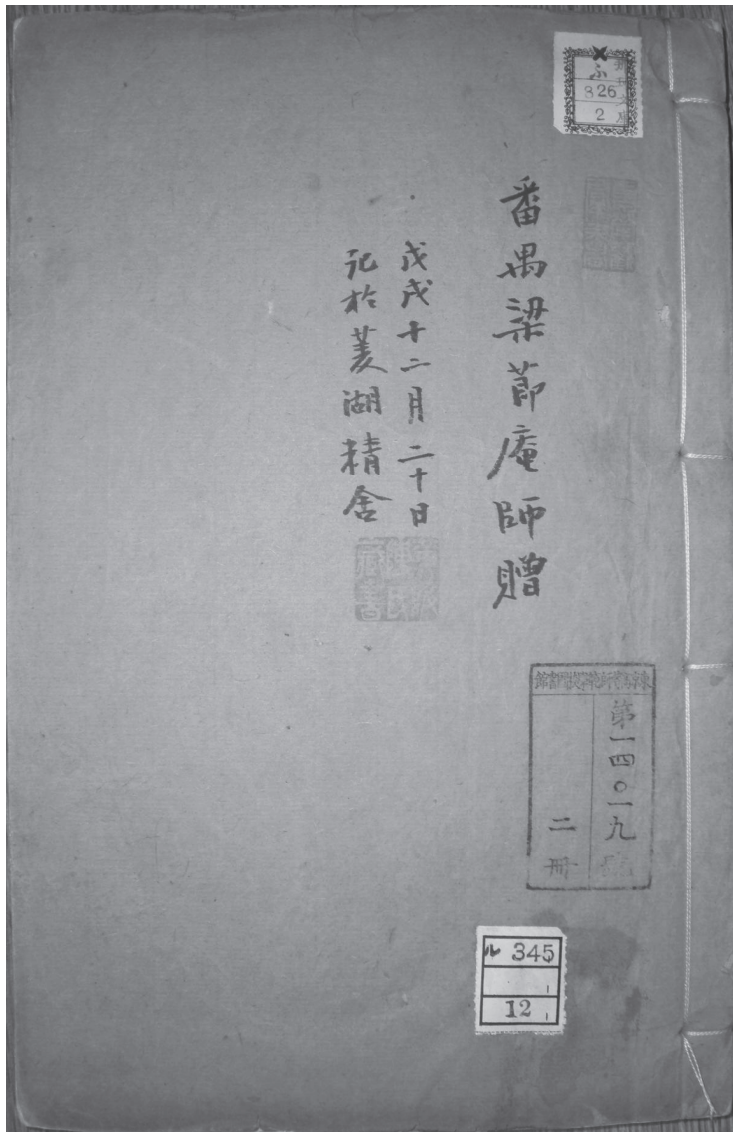 ふ
826
2
番禺梁節庵師贈
戊戌十二月二十日
記於菱湖精舍
陳氏
藏書
第一四〇一九號
二冊
ル 345
1
12 1